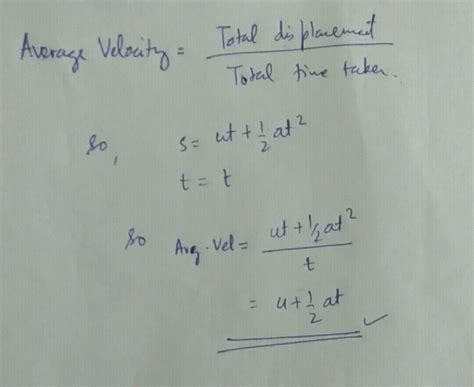 Average Velocity = Total displacement / Total time taken.
So, s = ut + 1/2 at²
t = t
So Avg. Vel = ut + 1/2 at² / t
= u + 1/2 at ✓